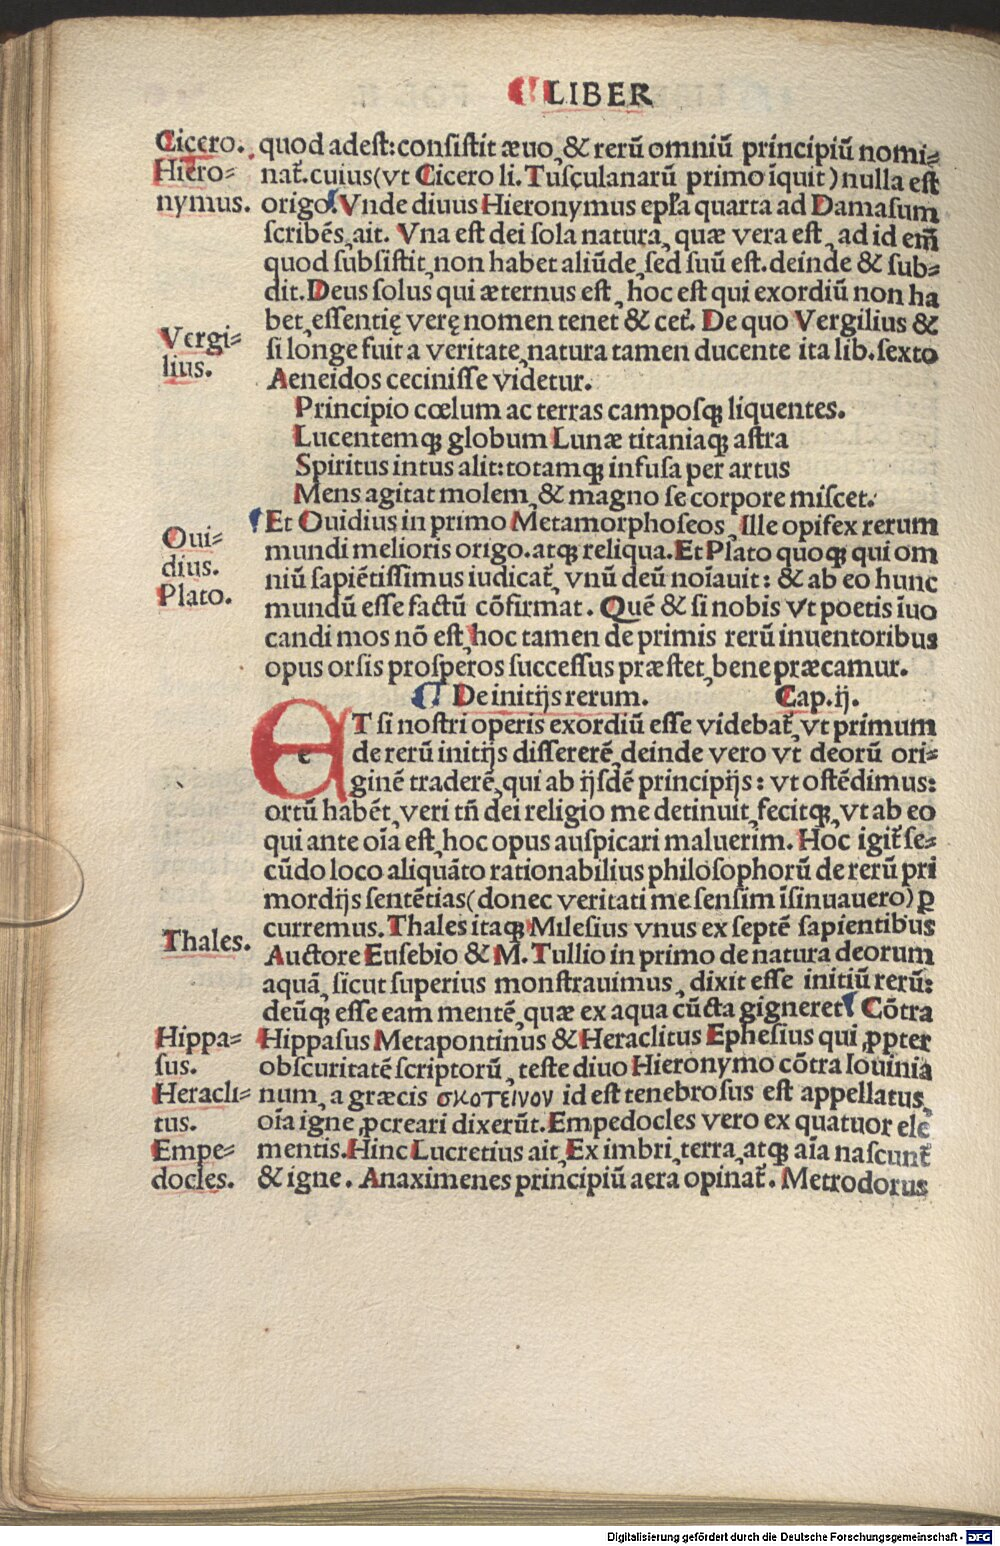 LIBER
Cicero. quod adest: consistit æuo, & rerũ omniũ principiũ nomi⸗
Hiero⸗ nat᷑. cuius (vt Cicero li. Tusculanarũ primo ĩquit) nulla est
nymus. origo. Vnde diuus Hieronymus ep̃la quarta ad Damasum
scribẽs, ait. Vna est dei sola natura, quæ vera est, ad id em̃
quod subsistit, non habet aliũde, sed suũ est. deinde & sub⸗
dit. Deus solus qui æternus est, hoc est qui exordiũ non ha
bet, essentię verę nomen tenet & cet᷑. De quo Vergilius &
Vergi⸗ si longe fuit a veritate, natura tamen ducente ita lib. sexto
lius. Aeneidos cecinisse videtur.
Principio cœlum ac terras camposqꝫ liquentes.
Lucentemqꝫ globum Lunæ titaniaqꝫ astra
Spiritus intus alit: totamqꝫ infusa per artus
Mens agitat molem, & magno se corpore miscet.
Et Ouidius in primo Metamorphoseos, Ille opifex rerum
Oui⸗ mundi melioris origo. atqꝫ reliqua. Et Plato quoqꝫ qui om
dius. niũ sapiẽtissimus iudicat᷑, vnũ deũ noĩauit: & ab eo hunc
Plato. mundũ esse factũ cõfirmat. Quẽ & si nobis vt poetis ĩuo
candi mos nõ est, hoc tamen de primis rerũ inuentoribus
opus orsis prosperos successus præstet, bene præcamur.
De initijs rerum. Cap. ij.
ET si nostri operis exordiũ esse videbat᷑, vt primum
de rerũ initijs dissererẽ, deinde vero vt deorũ ori⸗
ginẽ traderẽ, qui ab ijsdẽ principijs: vt ostẽdimus:
ortũ habẽt, veri tñ dei religio me detinuit, fecitqꝫ, vt ab eo
qui ante oĩa est, hoc opus auspicari maluerim. Hoc igit᷑ se⸗
cũdo loco aliquãto rationabilius philosophorũ de rerũ pri
mordijs sentẽtias (donec veritati me sensim ĩsinuauero) ꝑ
curremus. Thales itaqꝫ Milesius vnus ex septẽ sapientibus
Thales. Auctore Eusebio & M. Tullio in primo de natura deorum
aquã, sicut superius monstrauimus, dixit esse initiũ rerũ:
deũqꝫ esse eam mentẽ, quæ ex aqua cũcta gigneret. Cõtra
Hippa⸗ Hippasus Metapontinus & Heraclitus Ephesius qui ꝓpter
sus. obscuritatẽ scriptorũ, teste diuo Hieronymo cõtra Iouinia
Heracli⸗ num, a græcis σκοτεινον id est tenebrosus est appellatus,
tus. oĩa igne ꝓcreari dixerũt. Empedocles vero ex quatuor ele
Empe⸗ mentis. Hinc Lucretius ait, Ex imbri, terra, atqꝫ aĩa nascunt᷑
docles. & igne. Anaximenes principiũ aera opinat᷑. Metrodorus
Digitalisierung gefördert durch die Deutsche Forschungsgemeinschaft - DFG